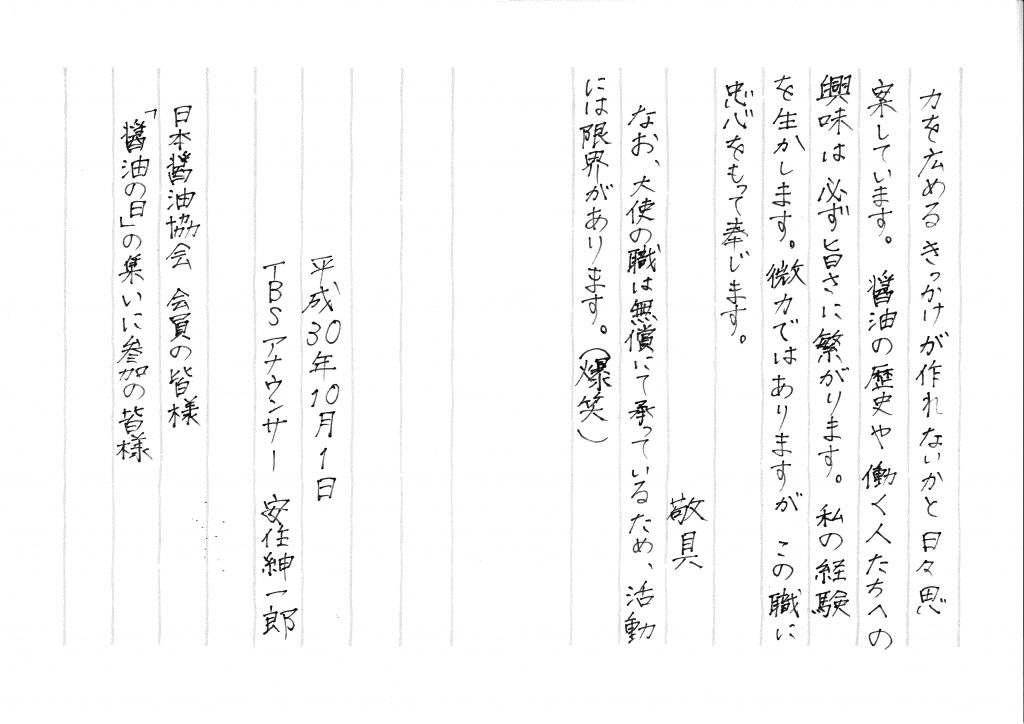 力を広めるきっかけが作れないかと日々思
案しています。醤油の歴史や働く人たちへの
興味は必ず旨さに繋がります。私の経験
を生かします。微力ではありますが この職に
忠心をもって奉じます。
敬具
なお、大使の職は無償にて承っているため、活動
には限界があります。(爆笑)
平成30年10月1日
TBSアナウンサー 安住紳一郎
日本醤油協会 会員の皆様
「醤油の日」の集いに参加の皆様